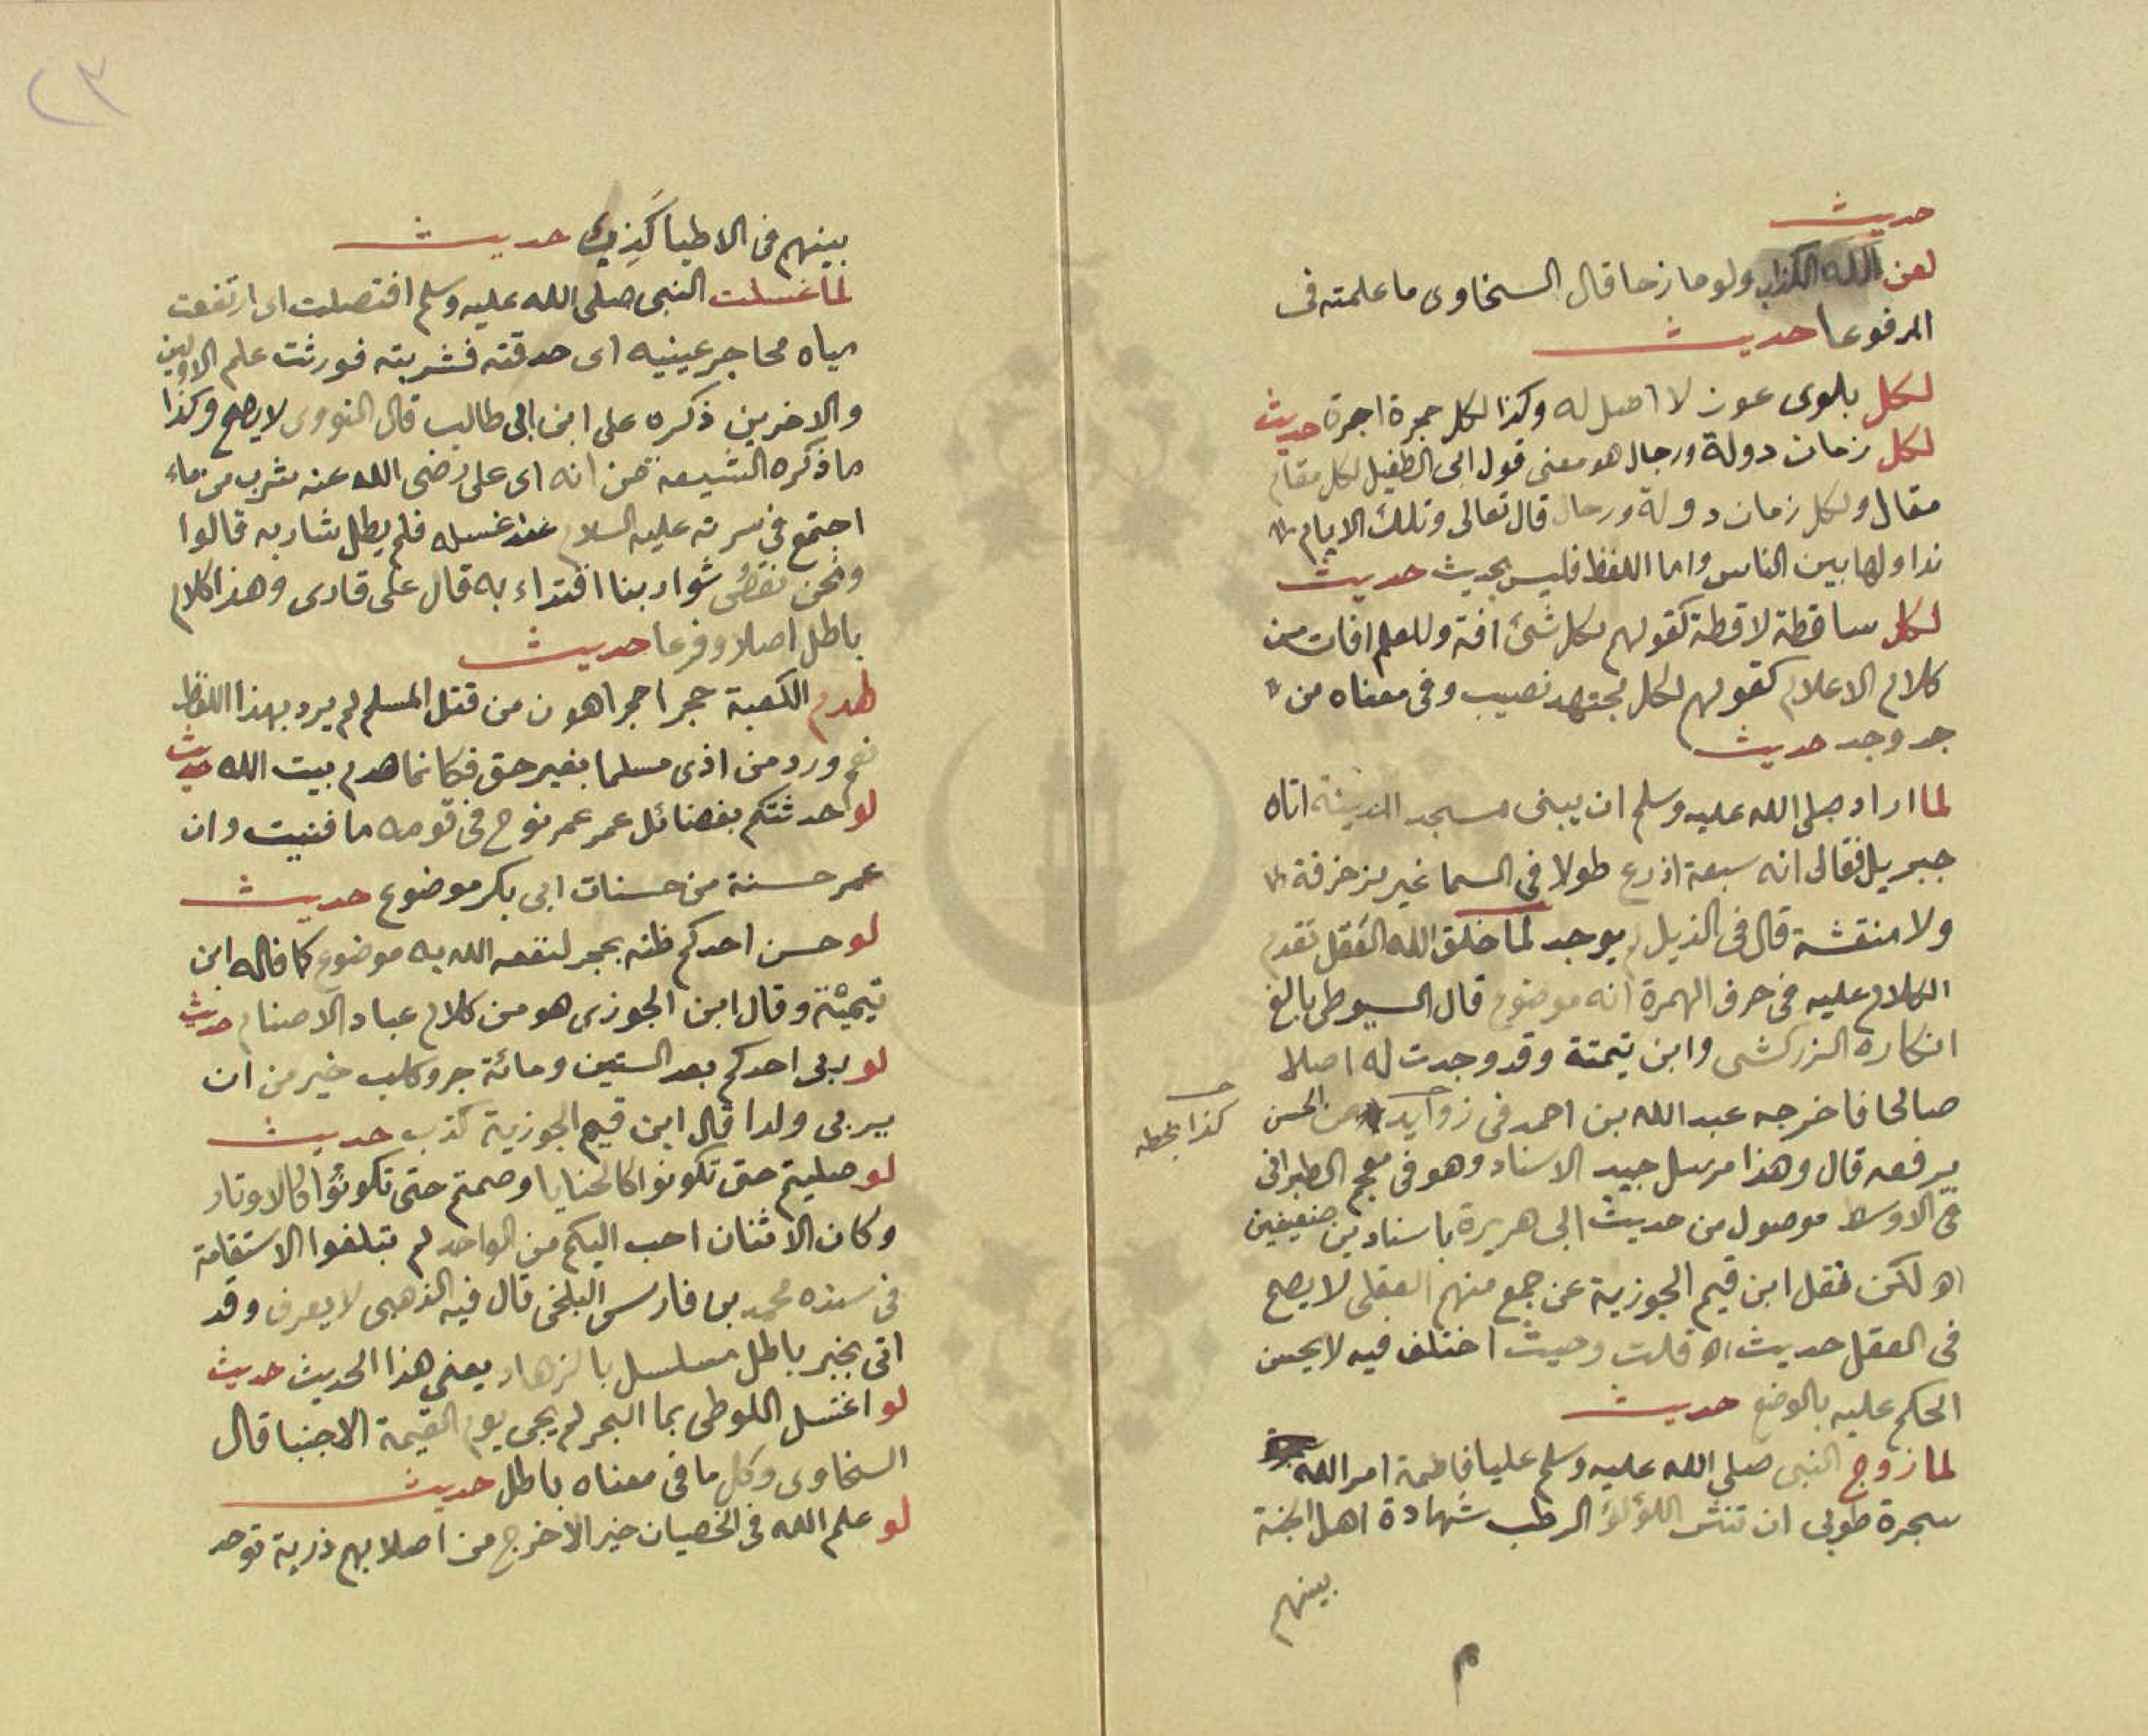 حديث
لعن الله الكذاب ولو مازحا قال السخاوى ما علمته فى
المرفوعا حديث
لكل بلوى عون لا اصل له وكذا لكل حجرة اجرة حديث
لكل زمان دولة ورجال هو معنى قول ابى الطفيل لكل مقام
مقال ولكل زمان دولة ورجال قال تعالى وتلك الايام
نداولها بين الناس واما اللفظ فليس بحديث حديث
لكل ساقطة لاقطة كقولهم لكل شئ افة وللعلم افات من
كلام الاعلام كقولهم لكل مجتهد نصيب وفى معناه من
جد وجد حديث
لما اراد صلى الله عليه وسلم ان يبنى مسجد المدينة اتاه
جبريل فقال انه سبعة اذرع طولا فى السما غير مزخرفة
ولا منقشة قال فى الذيل لم يوجد لما خلق الله العقل تقدم
الكلام عليه فى حرف الهمزة انه موضوع قال السيوطى بالغ
انكاره الزركشى وابن تيمتة وقد وجدت له اصلا
صالحا فاخرجه عبد الله بن احمد فى زوايد عن الحسن
كذا بخطه
يرفعه قال وهذا مرسل جيد الاسناد وهو فى معجم الطبرانى
فى الاوسط موصول من حديث ابى هريرة باسنادين ضعيفين
اه لكن نقل ابن قيم الجوزية عن جمع منهم العقلى لا يصح
فى العقل حديث اه قلت وحيث اختلف فيه لا يحسن
الحكم عليه بالوضع حديث
لما زوج النبى صلى الله عليه وسلم عليا فاطمة امر الله
سجرة طوبى ان تنثر اللؤلؤ الرطب شهادة اهل الجنة
بينهم
م
٢٣
بينهم فى الاطبا كذب حديث
لما غسلت النبى صلى الله عليه وسلم افتصلت اى ارتفعت
مياه محاجر عينيه اى حدقته فشربته فورثت علم الاولين
والاخرين ذكره على ابن ابى طالب قال النووى لا يصح وكذا
ما ذكره الشيعة من انه اى على رضى الله عنه شرب من ماء
اجتمع فى سرته عليه السلام عند غسله فلم يطل شاربه قالوا
ونحن نقص شواربنا اقتداء به قال على قارى وهذا كلام
باطل اصلا وفرعا حديث
لهدم الكعبة حجرا حجرا اهون من قتل المسلم لم يرد بهذا اللفظ
نعم ورد من اذى مسلما بغير حق فكانما هدم بيت الله حديث
لو حدثتكم بفضائل عمر عمر نوح فى قومه ما فنيت وان
عمر حسنة من حسنات ابى بكر موضوع حديث
لو حسن احدكم ظنه بحجر لنفعه الله به موضوع كما قاله ابن
تيمية وقال ابن الجوزى هو من كلام عباد الاصنام حديث
لو ربى احدكم بعد الستين ومائة جرو كلب خير من ان
يربى ولدا قال ابن قيم الجوزية كذب حديث
لو صليتم حتى تكونوا كالحنايا وصمتم حتى تكونوا كالاوتار
وكان الاثنان احب اليكم من الواحد لم تبلغوا الاستقامة
فى سنده محمد بن فارس البلخى قال فيه الذهبى لا يعرف وقد
اتى بخبر باطل مسلسل بالزهاد يعنى هذا الحديث حديث
لو اغتسل اللوطى بما البحر لم يجى يوم القيمة الا جنبا قال
السخاوى وكل ما فى معناه باطل حديث
لو علم الله فى الخصيان خيرا لاخرج من اصلابهم ذرية توحد